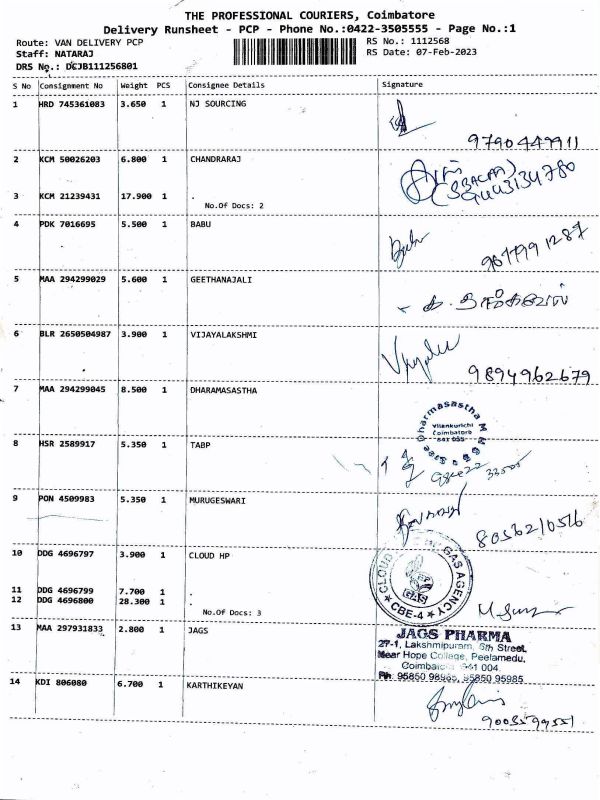 THE PROFESSIONAL COURIERS, Coimbatore
Delivery Runsheet - PCP - Phone No.:0422-3505555 - Page No.:1
Route: VAN DELIVERY PCP RS No.: 1112568
Staff: NATARAJ RS Date: 07-Feb-2023
DRS No.: DCJB111256801
S No Consignment No Weight PCS Consignee Details Signature
1 HRD 745361083 3.650 1 NJ SOURCING
9790449911
2 KCM 50026203 6.800 1 CHANDRARAJ
3 KCM 21239431 17.900 1 .
No.Of Docs: 2
4 PDK 7016695 5.500 1 BABU
5 MAA 294299029 5.600 1 GEETHANAJALI
6 BLR 2650504987 3.900 1 VIJAYALAKSHMI
9894962679
7 MAA 294299045 8.500 1 DHARAMASASTHA
Sree Dharmasastha
Vilankurichi
Coimbatore
641 035
8 HSR 2589917 5.350 1 TABP
9 PON 4509983 5.350 1 MURUGESWARI
8056210516
10 DDG 4696797 3.900 1 CLOUD HP
CLOUD HP GAS AGENCY
CBE-4
11 DDG 4696799 7.700 1 .
12 DDG 4696800 28.300 1 .
No.Of Docs: 3
13 MAA 297931833 2.800 1 JAGS
JAGS PHARMA
27-1, Lakshmipuram, 6th Street,
Near Hope College, Peelamedu,
Coimbatore 641 004.
Ph: 95850 98985, 95850 95985
14 KDI 806080 6.700 1 KARTHIKEYAN